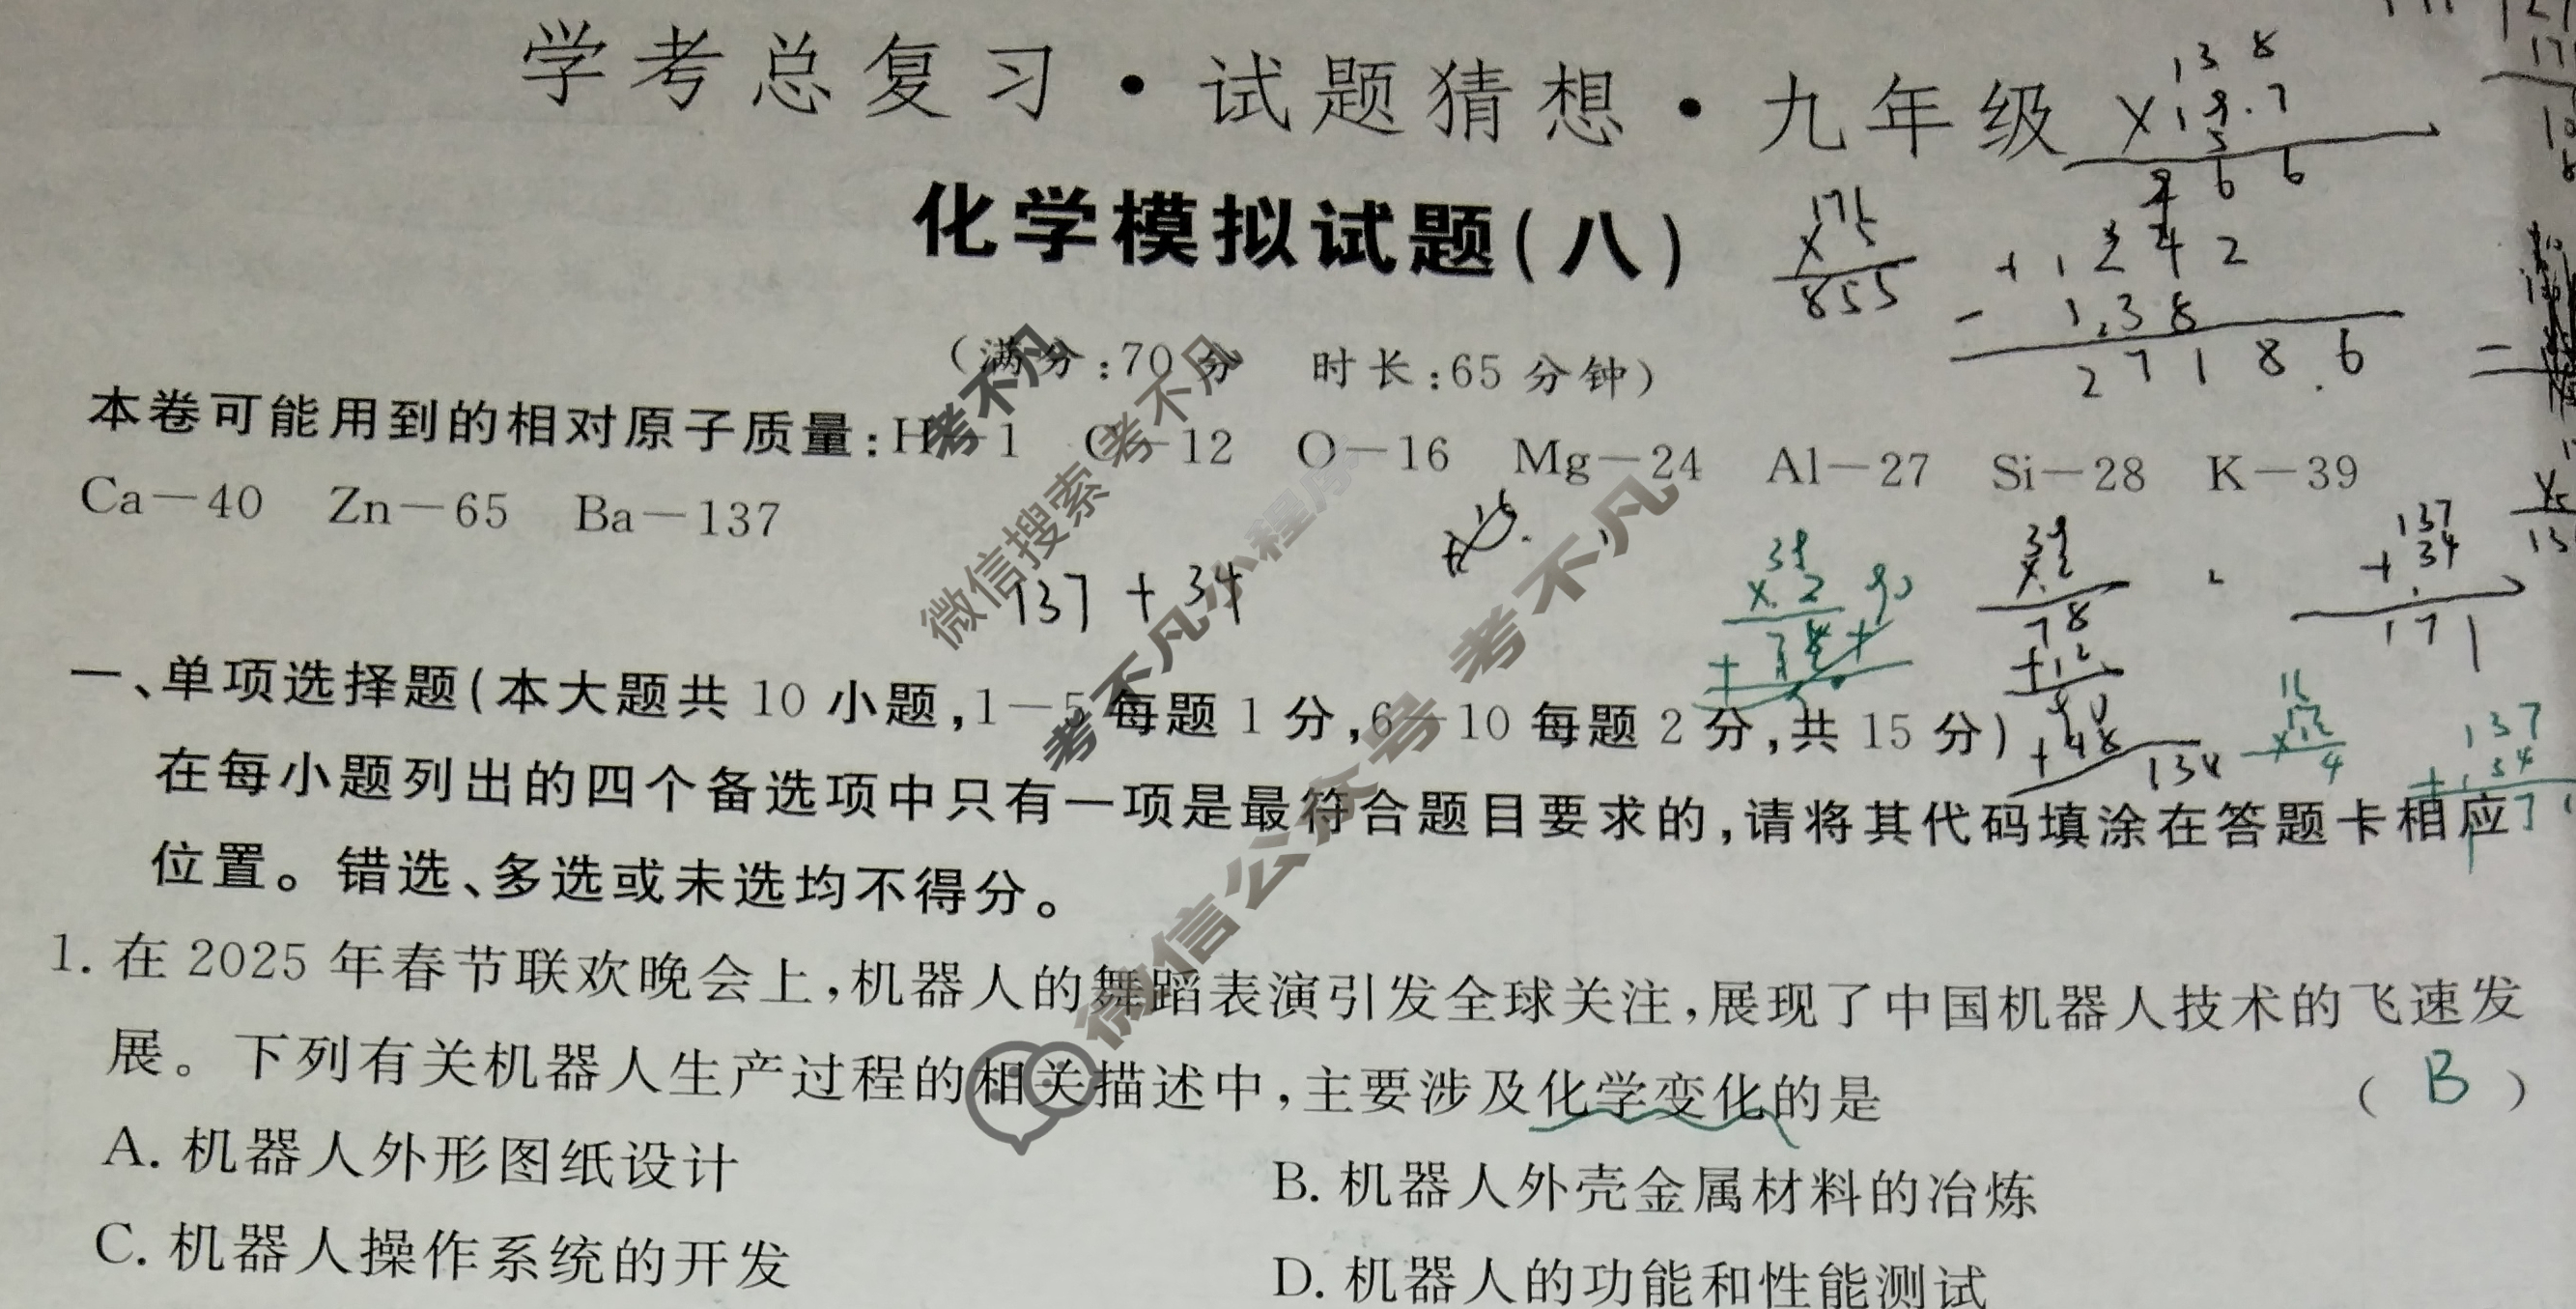 学考总复习·试题猜想·九年级
化学模拟试题(八)
(满分:70分 时长:65分钟)
本卷可能用到的相对原子质量:H-1 C-12 O-16 Mg-24 Al-27 Si-28 K-39
Ca-40 Zn-65 Ba-137
137+34
一、单项选择题(本大题共10小题,1-5每题1分,6-10每题2分,共15分)
在每小题列出的四个备选项中只有一项是最符合题目要求的,请将其代码填涂在答题卡相应
位置。错选、多选或未选均不得分。
1. 在2025年春节联欢晚会上,机器人的舞蹈表演引发全球关注,展现了中国机器人技术的飞速发
展。下列有关机器人生产过程的相关描述中,主要涉及化学变化的是 ( B )
A. 机器人外形图纸设计
B. 机器人外壳金属材料的冶炼
C. 机器人操作系统的开发
D. 机器人的功能和性能测试
考不凡
微信搜索 考不凡
考不凡小程序
微信公众号 考不凡
138
×19.7
966
1242
138
2718.6
175
×5
855
39
×2
78
+12
90
+48
137
+34
171